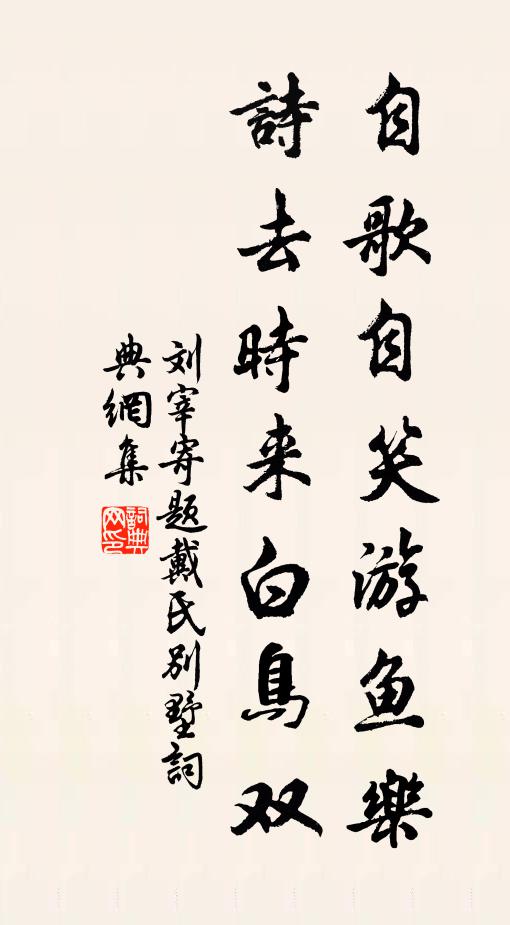 自歌自笑游鱼樂
詩去時来白鳥双
刘宰寄题戴氏别墅詞
典網集
詞典
网印